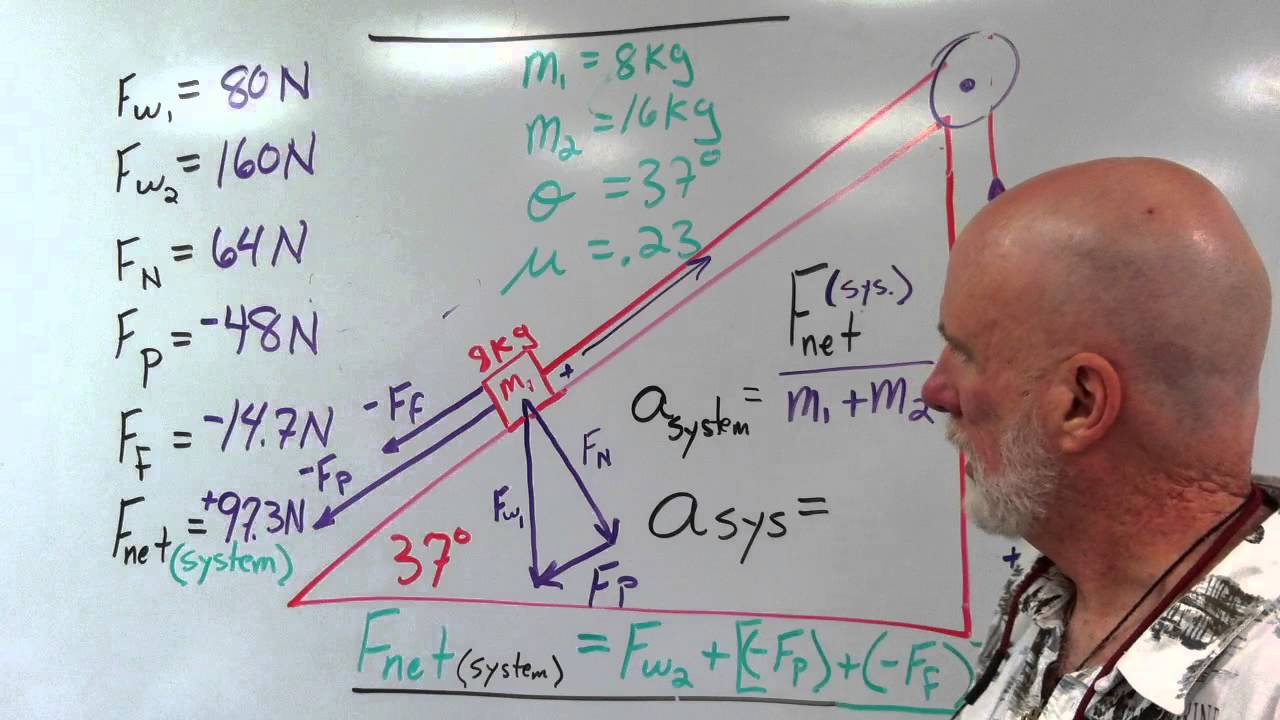 Fw₁ = 80N
Fw₂ = 160N
F_N = 64N
F_P = -48N
F_F = -14.7N
F_net(system) = +97.3N
m₁ = 8kg
m₂ = 16kg
θ = 37°
μ = .23
8kg
m₁
+
-F_F
-F_P
F_N
Fw₁
F_P
37°
a_system = F_net(sys.) / m₁ + m₂
a_sys =
+
F_net(system) = Fw₂ + [(-F_P) + (-F_F)